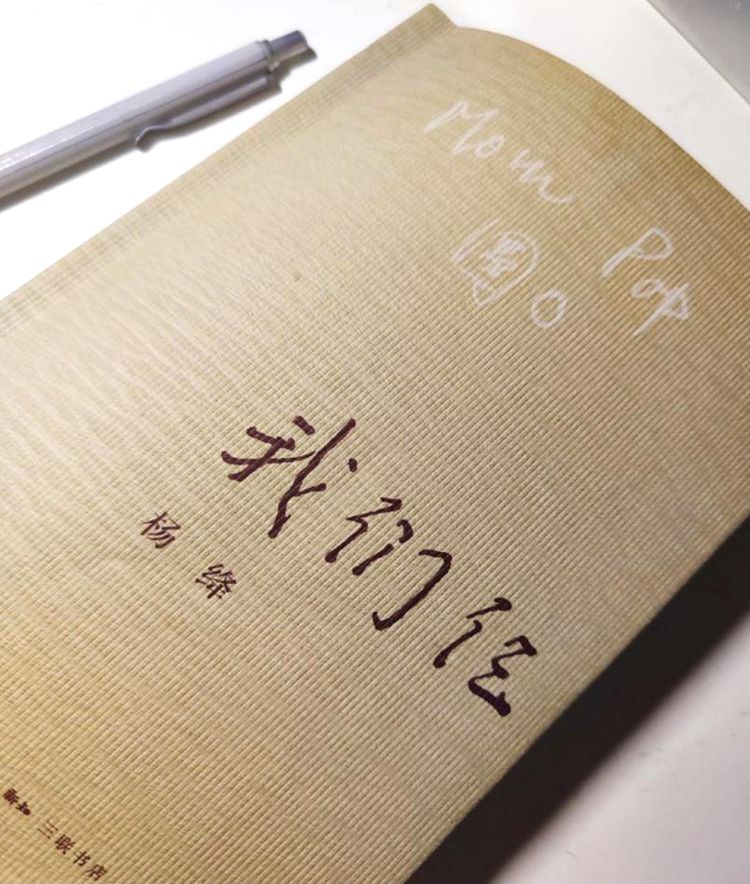 Mom Pop
圆 O
我们仨
杨绛
新知 三联书店